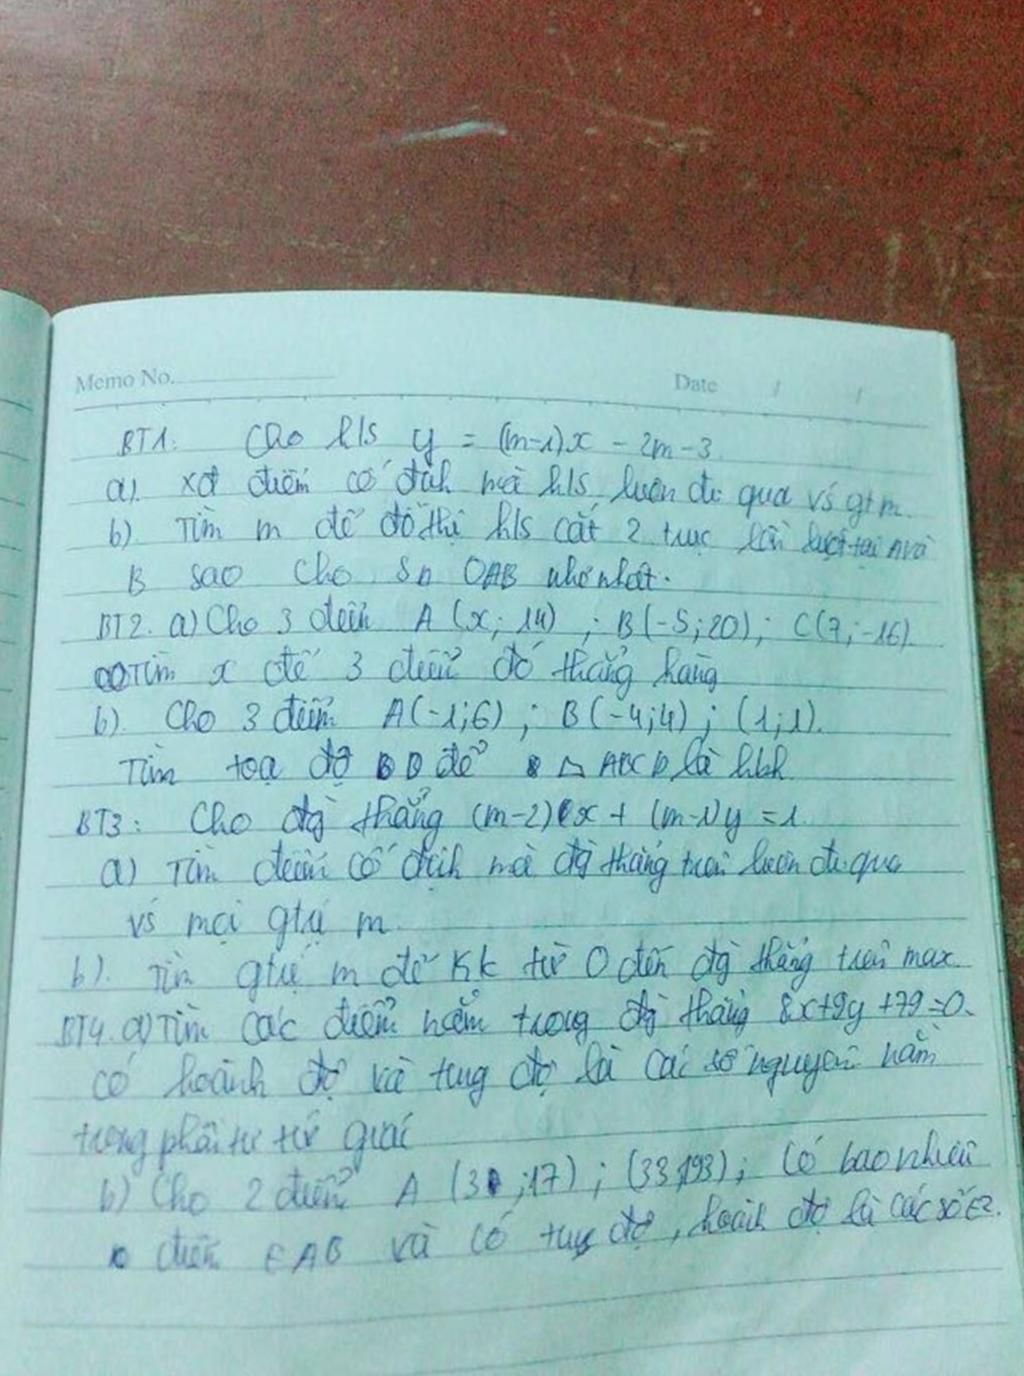 Memo No.
Date / /
BT1. Cho h/s y = (m-1)x - 2m-3
a). xđ điểm cố định mà h/s luôn đi qua vs gt m.
b) Tìm m để đồ thị h/s cắt 2 trục lần lượt tại A và
B sao cho S∆ OAB nhỏ nhất.
BT2. a) Cho 3 điểm A (x; 14) ; B(-5;20); C(7;-16).
Tìm x để 3 điểm đó thẳng hàng
b). Cho 3 điểm A(-1;6) ; B(-4;4) ; (1;1).
Tìm toạ độ D để ABCD là hbh
BT3: Cho đg thẳng (m-2)x + (m-1)y = 1
a) Tìm điểm cố định mà đg thẳng trên luôn đi qua
vs mọi gtrị m
b). Tìm gtrị m để Kk từ O đến đg thẳng trên max
BT4. a) Tìm các điểm nằm trong đg thẳng 8x+9y+79=0.
có hoành độ và tung độ là các số nguyên nằm
trong phần tư
b) Cho 2 điểm A (3 ;17) ; (33;193); Có bao nhiêu
điểm ∈ AB và có tung độ, hoành độ là các số ∈Z.